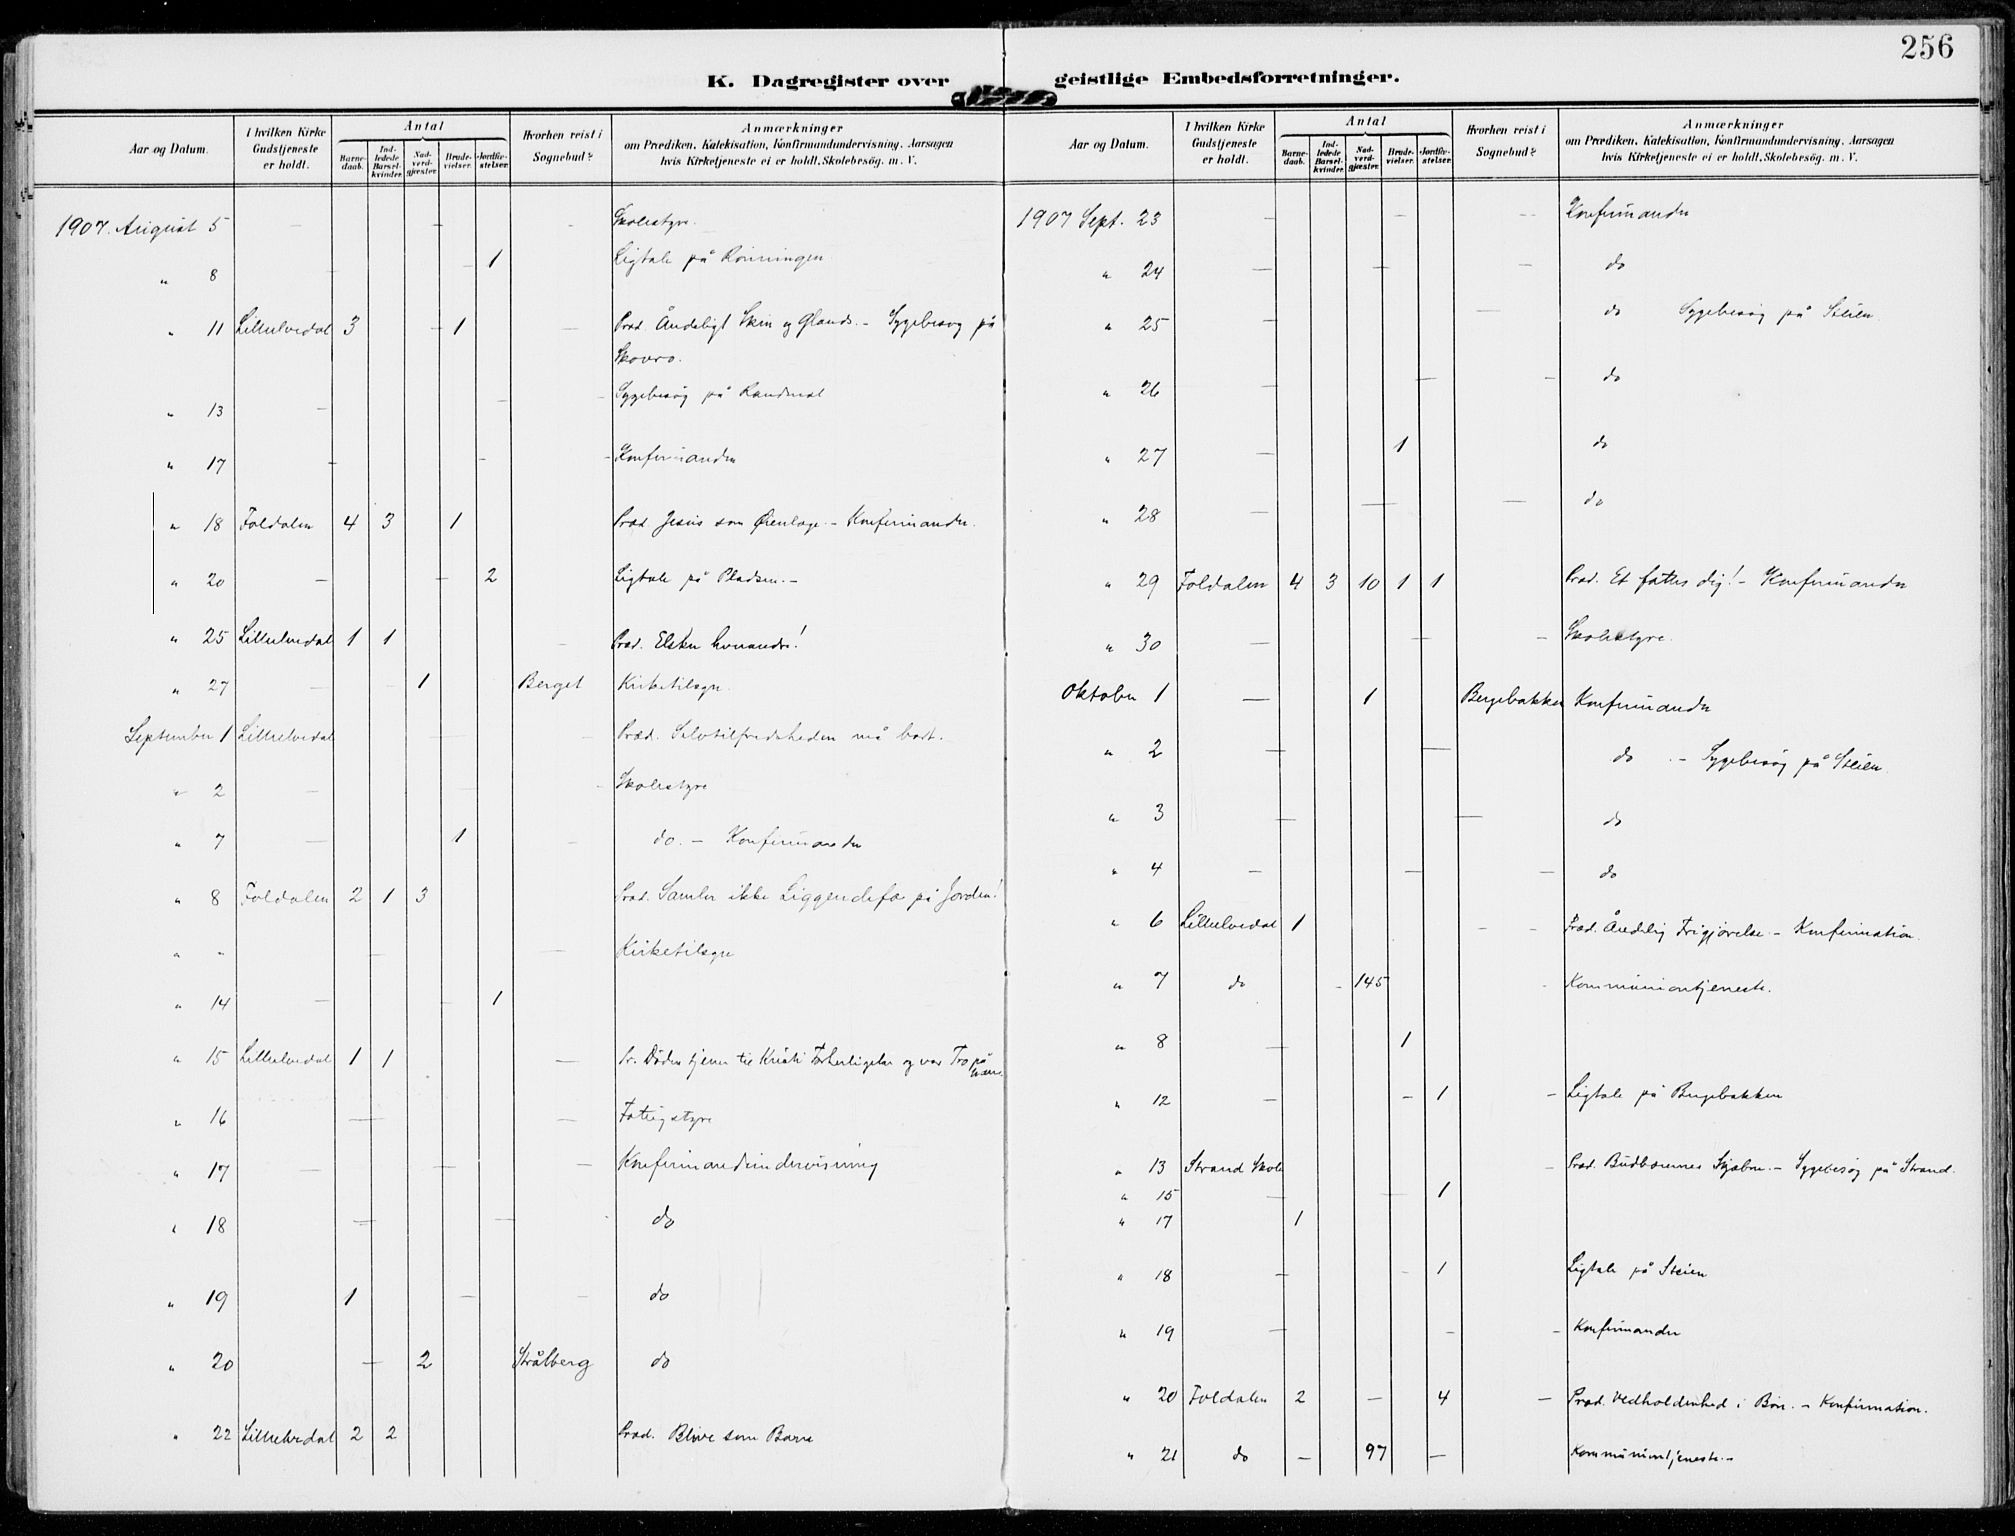 256
K. Dagregister over geistlige Embedsforretninger.
Aar og Datum. I hvilken Kirke Gudstjeneste er holdt. Antal Barnedaab. Indledede Barselkvinder. Nadverdgjæster. Brudevielser. Jordfæstelser. Hvorhen reist i Sognebud? Anmærkninger om Prædiken, Katekisation, Konfirmandundervisning, Aarsagen hvis Kirketjeneste ei er holdt, Skolebesøg. m. V.
1907. August 5 — — - Skolestyre.
" 8 - - 1 Ligtale på Rønningen.
" 11 Lilleelvedal 3 - 1 — Præd. Åndeligt Skin og Glands. - Sygebesøg på
Skovro.
" 13 — — - Sygebesøg på
" 17 - - - Konfirmander
" 18 Foldalen 4 3 1 Præd. Jesus som Øienlæge. - Konfirmander.
" 20 — - 2 Ligtale på Pladsen. -
" 25 Lilleelvedal 1 1 — Præd. Elsker hverandre!
" 27 — - 1 Berget Kirketilsyn.
September 1 Lilleelvedal — — Præd. Selvtilfredsheden må bort.
" 2 — — - Skolestyre
" 7 — 1 - do. - Konfirmander
" 8 Foldalen 2 1 3 Præd. Samler ikke Liggendefæ på Jorden!
" " — — Kirketilsyn
" 14 — - 1
" 15 Lilleelvedal 1 1 — Pr. Døden tjener til Kristi Forherligelse og vor Tro på
ham.
" 16 — — Fattigstyre
" 17 — — — Konfirmandundervisning
" 18 — — do
" 19 1 — - do
" 20 — 2 Strålberg do
" 22 Lilleelvedal 2 2 Præd. Blive som Børn
Aar og Datum. I hvilken Kirke Gudstjeneste er holdt. Antal Barnedaab. Indledede Barselkvinder. Nadverdgjæster. Brudevielser. Jordfæstelser. Hvorhen reist i Sognebud? Anmærkninger om Prædiken, Katekisation, Konfirmandundervisning, Aarsagen hvis Kirketjeneste ei er holdt, Skolebesøg. m. V.
1907 Sept. 23 — - - Konfirmander
" 24 — — — do
" 25 — — do Sygebesøg på Steien.
" 26 — — - do
" 27 — 1 do
" 28 — — — do
" 29 Foldalen 4 3 10 1 1 Præd. Et fattes dig! - Konfirmander
" 30 — — - Skolestyre.
Oktober 1 — 1 Bergebakken Konfirmander
" 2 — — do. - Sygebesøg på Steien.
" 3 — — do
" 4 - — — do
" 6 Lilleelvedal 1 - - Præd. Åndelig Frigjørelse. - Konfirmation.
" 7 do - 145 - Kommuniontjeneste.
" 8 — 1
" 12 — - 1 - Ligtale på Bergebakken
" 13 Strand Skole - Præd. Budbærernes Skjæbne. - Sygebesøg på Strand.
" 15 — — 1
" 17 1
" 18 - - 1 Ligtale på Steien
" 19 — - - Konfirmander
" 20 Foldalen 2 — 4 — Præd. Vedholdenhed i Bøn. - Konfirmation.
" 21 do — 97 — Kommuniontjeneste. -